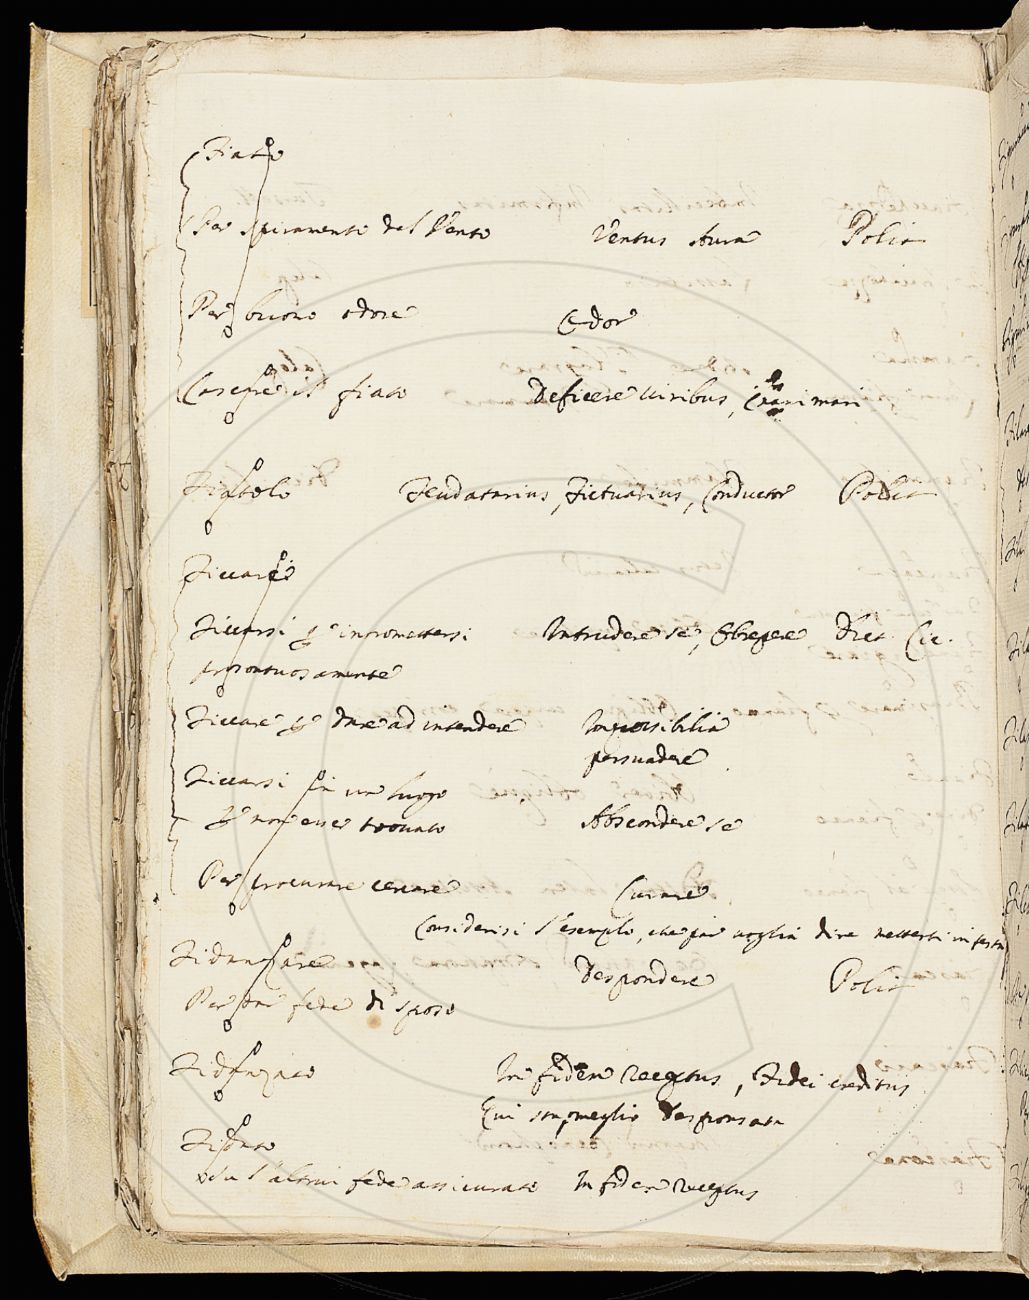 Fiato
Per spiramento del Vento Ventus Aura Polit
Per buono odore Odor
Cascare il fiato Deficere viribus, Exanimari
Fittuolo Feudatarius, Fictuarius, Conductor Polit
Ficcare
Ficcarsi p intromettersi Intrudere se, Obrepere Dict. Cic.
prosontuosamente
Ficcare p dare ad intendere Impossibilia
persuadere
Ficcarsi in un luogo
p non esser trovato Abscondere se
Per procurare cercare Curare
Considerisi l'esempio, che par voglia dire mettersi in testa
Fidanzare Despondere Polit
Per dar fede di sposo
Fidanzato In fidem receptus, Fidei creditus
Qui sta meglio Desponsata
Fidato
su l'altrui fede assicurato In fidem receptus